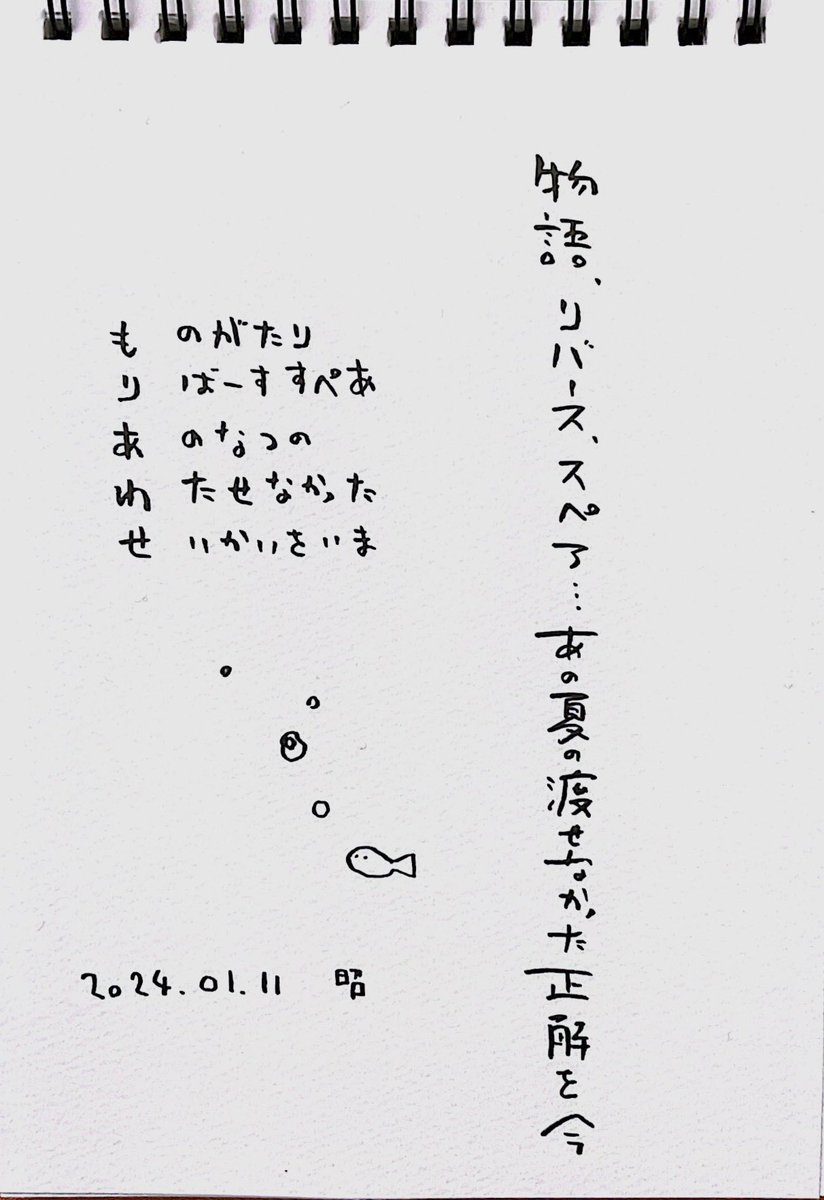 物語、リバース、スペア…あの夏の渡せなかった正解を今
も のがたり
り ばーすすぺあ
あ のなつの
わ たせなかった
せ いかいをいま
2024.01.11 昭